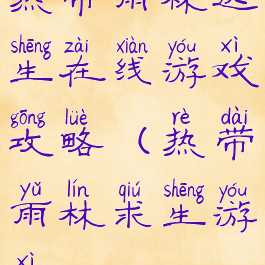 热带雨林逃
shēng zài xiàn yóu xì
生在线游戏
gōng lüè rè dài
攻略（热带
yǔ lín qiú shēng yóu
雨林求生游
xì